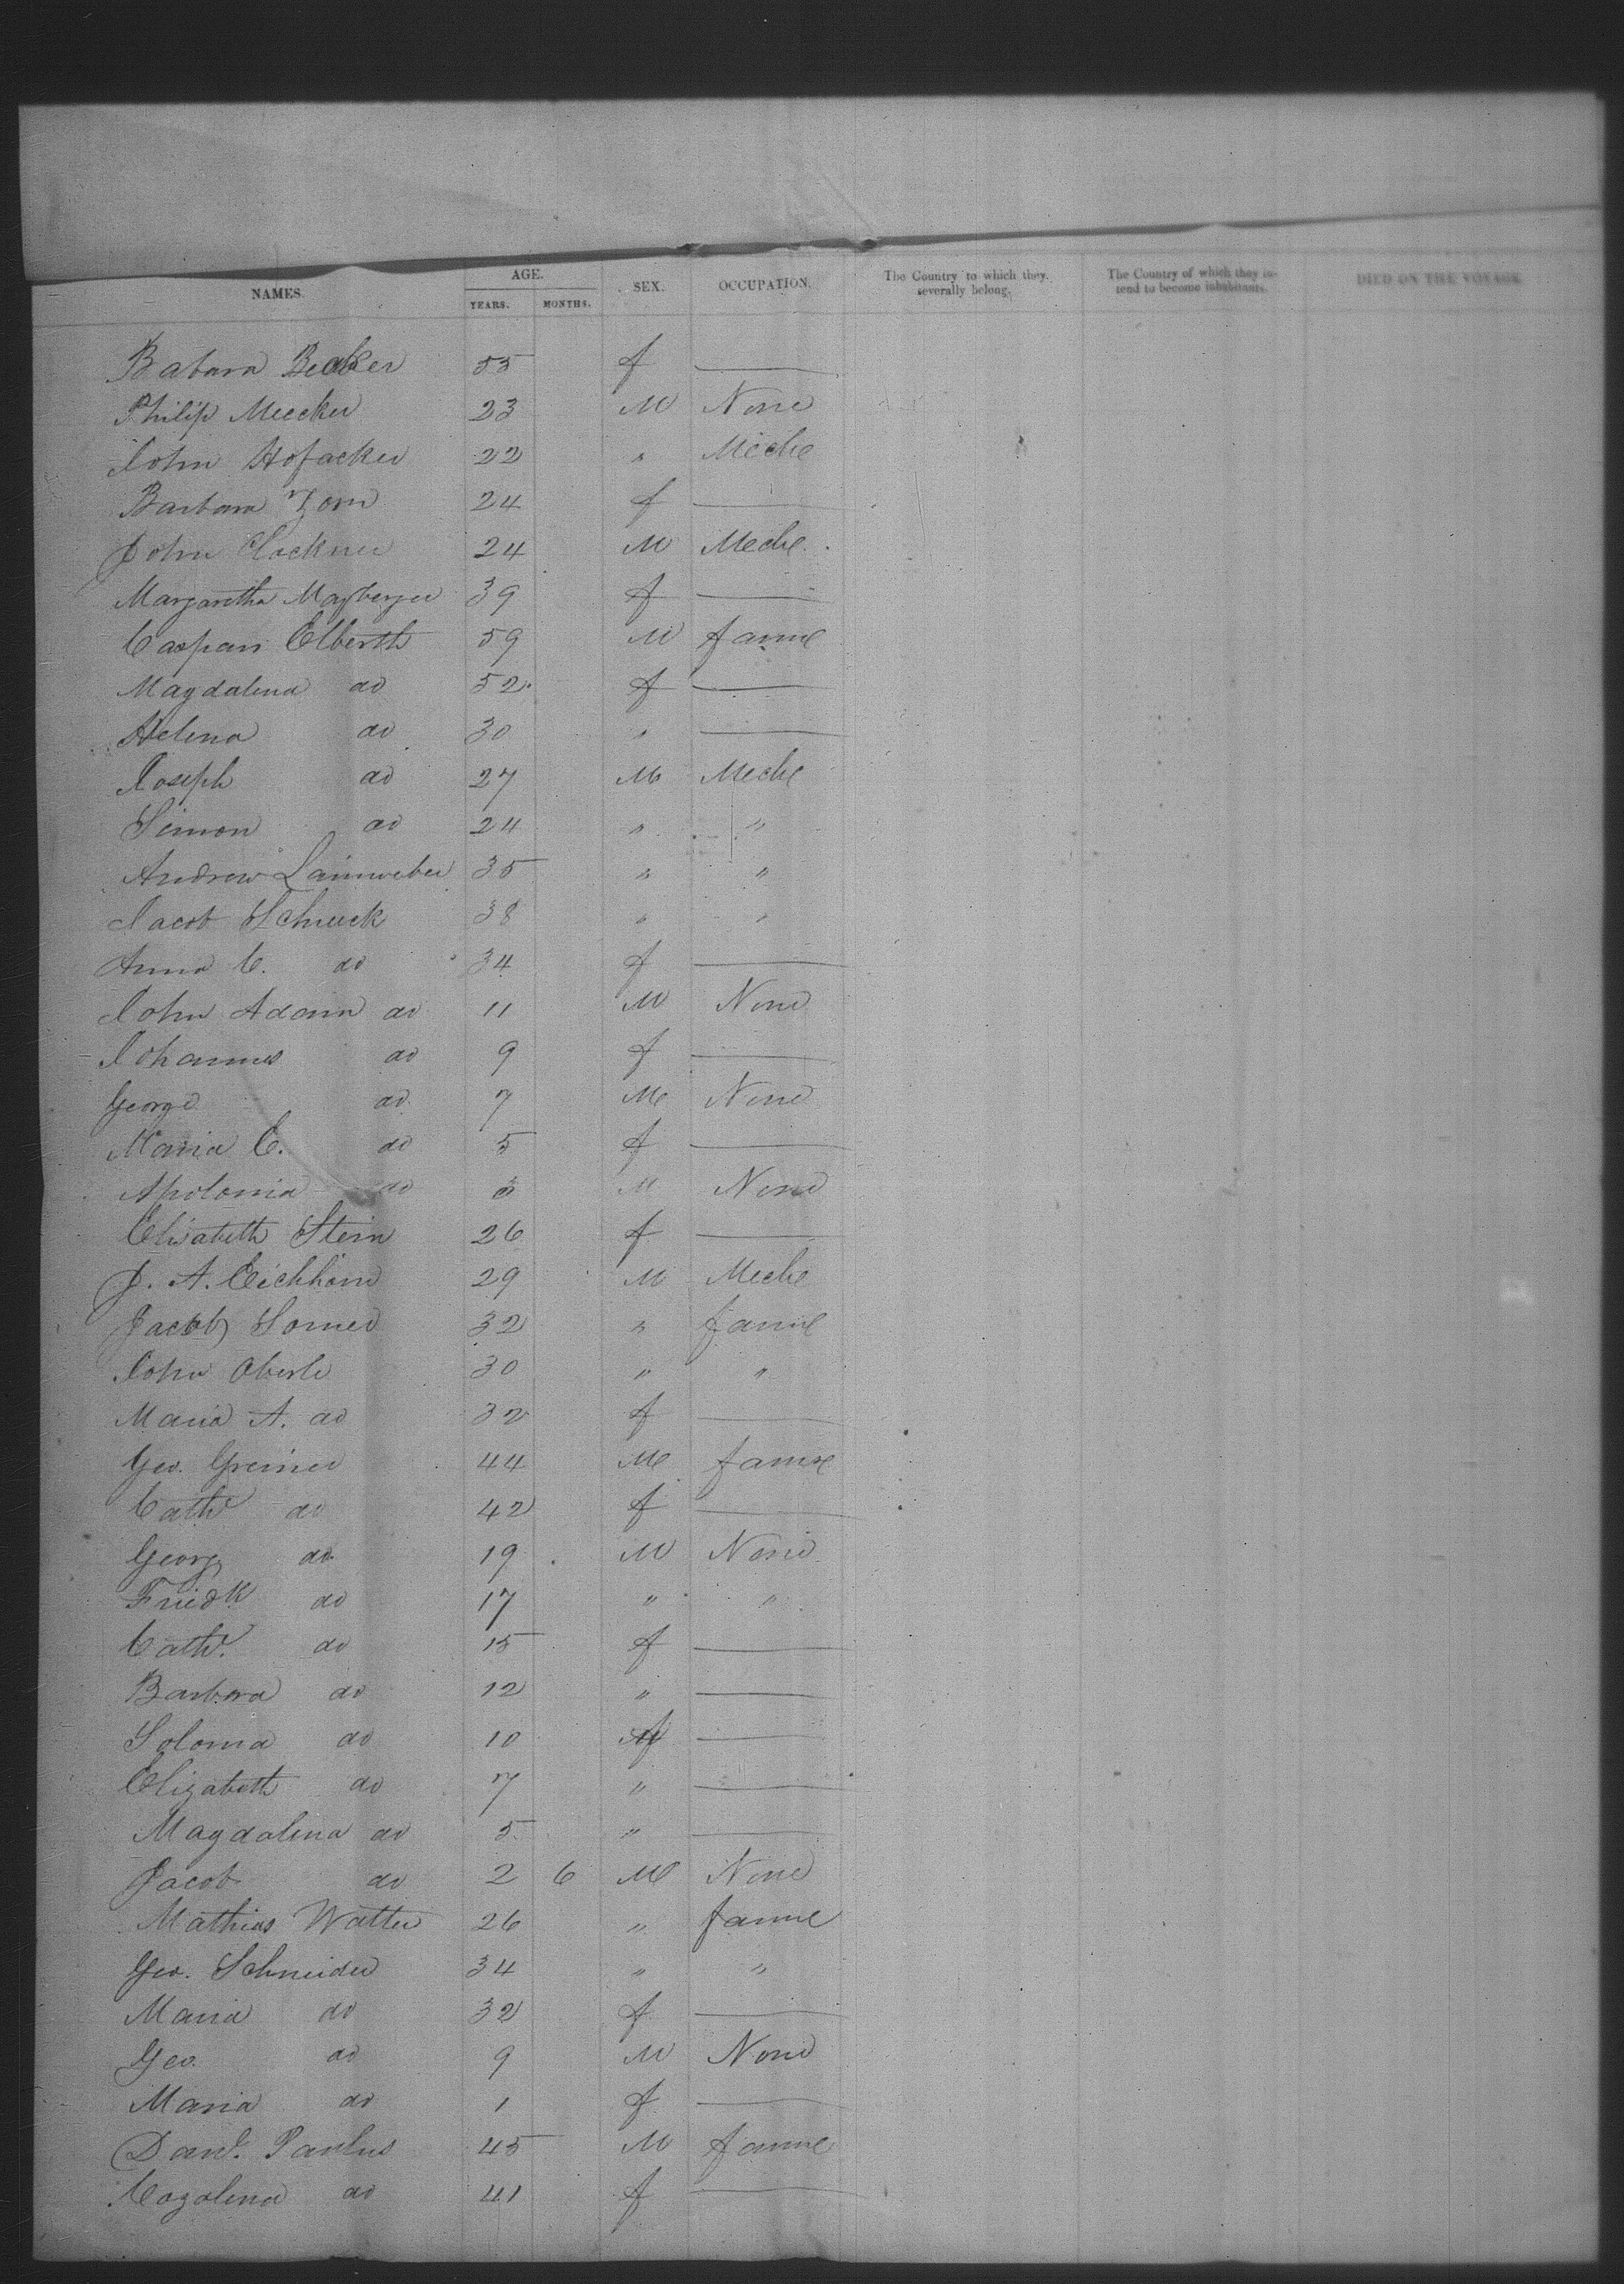 NAMES. AGE. YEARS. MONTHS. SEX. OCCUPATION. The Country to which they severally belong. The Country of which they intend to become inhabitants. DIED ON THE VOYAGE
Babara Becker 55 f —
Philip Meecker 23 M None
John Hofacker 22 " Meche
Barbara Zorn 24 f —
John Lockner 24 M Meche.
Margaretha Mayberger 39 f —
Caspar Elberth 59 M farme
Magdalena do 52 f —
Helena do 30 " —
Joseph do 27 M Meche
Simon do 24 " "
Andrew Lainweber 35 " "
Jacob Schuck 38 " "
Anna C. do 34 f —
John Adam do 11 M None
Johannes do 9 f —
George do 7 M None
Maria C. do 5 f —
Apolonia do 3 M None
Elisabeth Stein 26 f —
J. A. Eichhorn 29 M Meche
Jacob Somer 32 " farme
John Oberle 30 " "
Maria A. do 32 f —
Geo. Greiner 44 M farme
Cath do 42 f —
Georg do 19 M None
Friedk do 17 " "
Cath. do 15 f —
Barbara do 12 " —
Soloma do 10 f —
Elizabeth do 7 " —
Magdalena do 5 " —
Jacob do 2 6 M None
Mathias Walter 26 " farme
Geo. Schneider 34 " "
Maria do 32 f —
Geo. do 9 M None
Maria do 1 f —
Danl. Paulus 45 M farme
Magalena do 41 f —